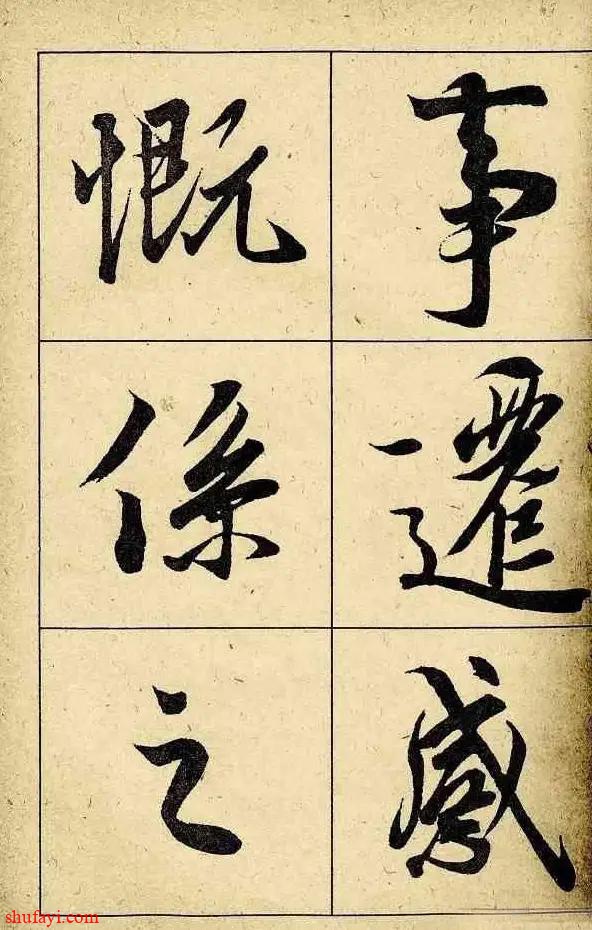 事遷感
慨係之
shufayi.com